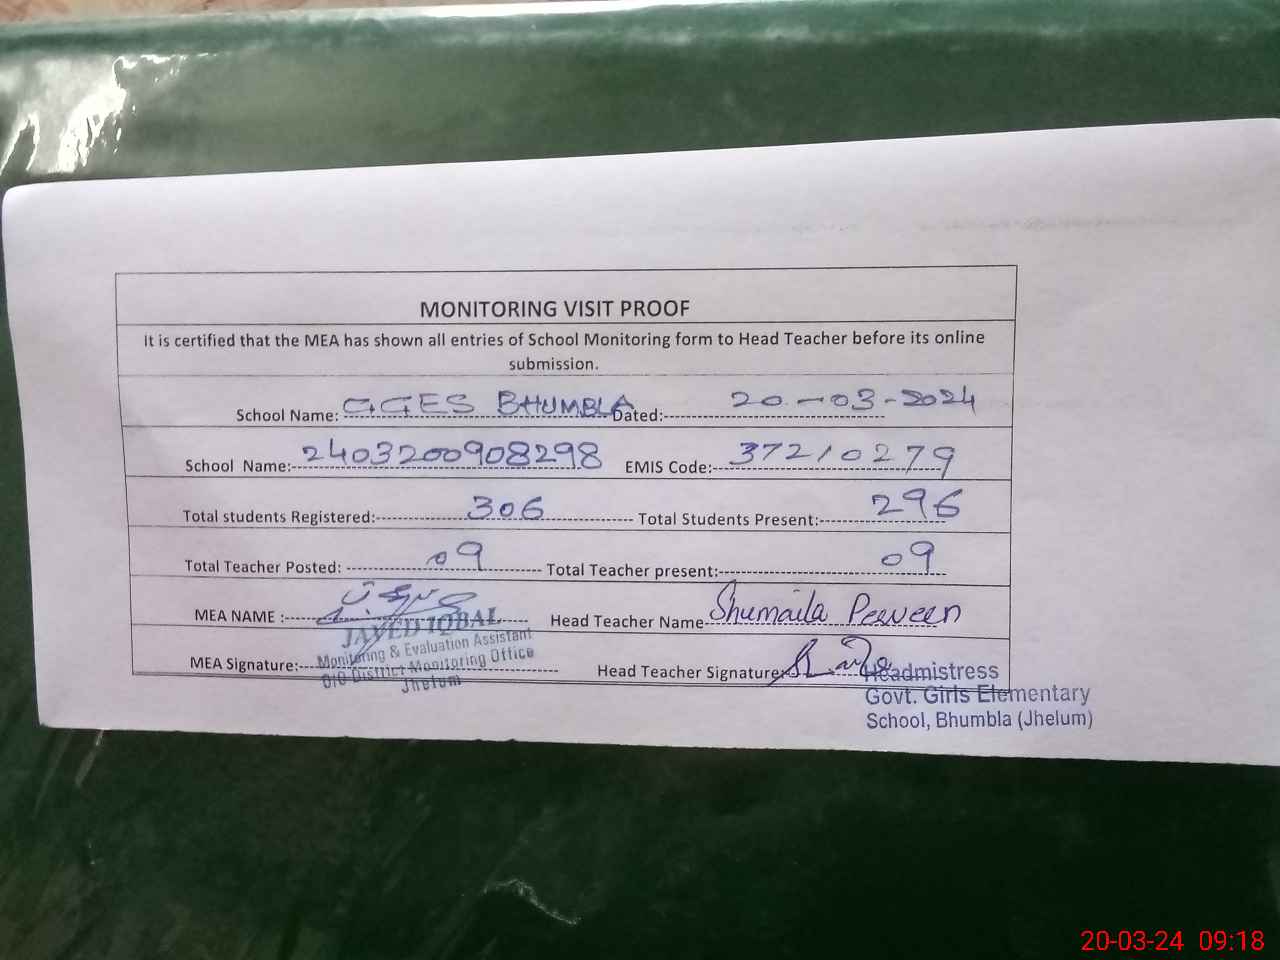 MONITORING VISIT PROOF
It is certified that the MEA has shown all entries of School Monitoring form to Head Teacher before its online
submission.
School Name: GGES BHUMBLA Dated: 20-03-2024
School Name: 2403200908298 EMIS Code: 37210279
Total students Registered: 306 Total Students Present: 296
Total Teacher Posted: 09 Total Teacher present: 09
MEA NAME : Head Teacher Name Shumaila Perveen
JAVED IQBAL
Monitoring & Evaluation Assistant
O/O District Monitoring Office
Jhelum
MEA Signature: Head Teacher Signature:
Headmistress
Govt. Girls Elementary
School, Bhumbla (Jhelum)
20-03-24 09:18